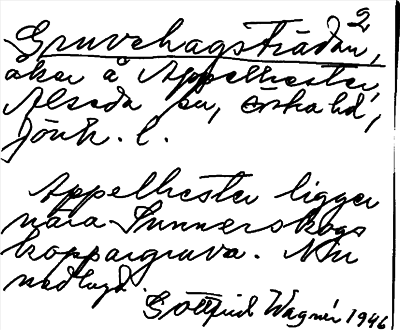 2
Gruvehagsträdan,
åker å Appelhester,
Alseda sn, Östra hd,
Jönk. l.
Appelhester ligger
nära Sunnerskogs
koppargruva. Nu
nedlagd.
Gottfrid Wagnér 1946